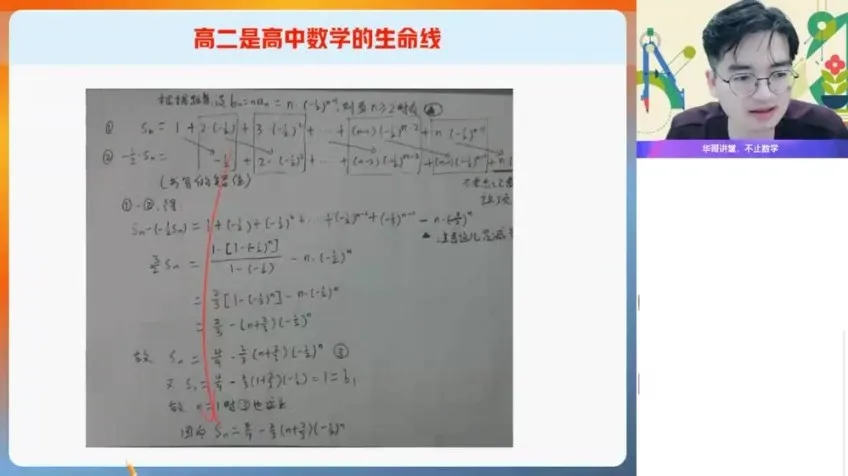 高二是高中数学的生命线
根据题意,设 bₙ=naₙ = n·(-½)ⁿ⁻¹,则当 n≥2 时有
① Sₙ = 1 + 2·(-½) + 3·(-½)² + ··· + (n-1)(-½)ⁿ⁻² + n·(-½)ⁿ⁻¹
② -½·Sₙ = -½ + 2·(-½)² + ··· + (n-2)(-½)ⁿ⁻² + (n-1)(-½)ⁿ⁻¹ + n·
①-②,得
Sₙ-(-½Sₙ) = 1+(-½)+(-½)²+···+(-½)ⁿ⁻²+(-½)ⁿ⁻¹ - n·(-½)ⁿ
3/2 Sₙ = 1·[1-(-½)ⁿ]/1-(-½) - n·(-½)ⁿ
= ⅔[1-(-½)ⁿ] - n·(-½)ⁿ
= ⅔-(n+⅔)(-½)ⁿ
故 Sₙ = 4/9 - ⅔(n+⅔)(-½)ⁿ ③
又 S₁ = 4/9 - ⅔(1+⅔)(-½) = 1 = b₁
故 n=1 时③也成立
因此 Sₙ = 4/9 - ⅔(n+⅔)(-½)ⁿ
华哥讲堂,不止数学